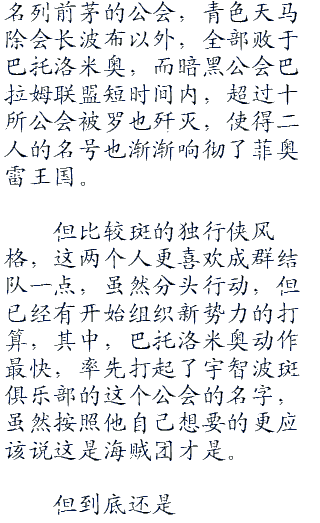 名列前茅的公会，青色天马
除会长波布以外，全部败于
巴托洛米奥，而暗黑公会巴
拉姆联盟短时间内，超过十
所公会被罗也歼灭，使得二
人的名号也渐渐响彻了菲奥
雷王国。
但比较斑的独行侠风
格，这两个人更喜欢成群结
队一点，虽然分头行动，但
已经有开始组织新势力的打
算，其中，巴托洛米奥动作
最快，率先打起了宇智波斑
俱乐部的这个公会的名字，
虽然按照他自己想要的更应
该说这是海贼团才是。
但到底还是